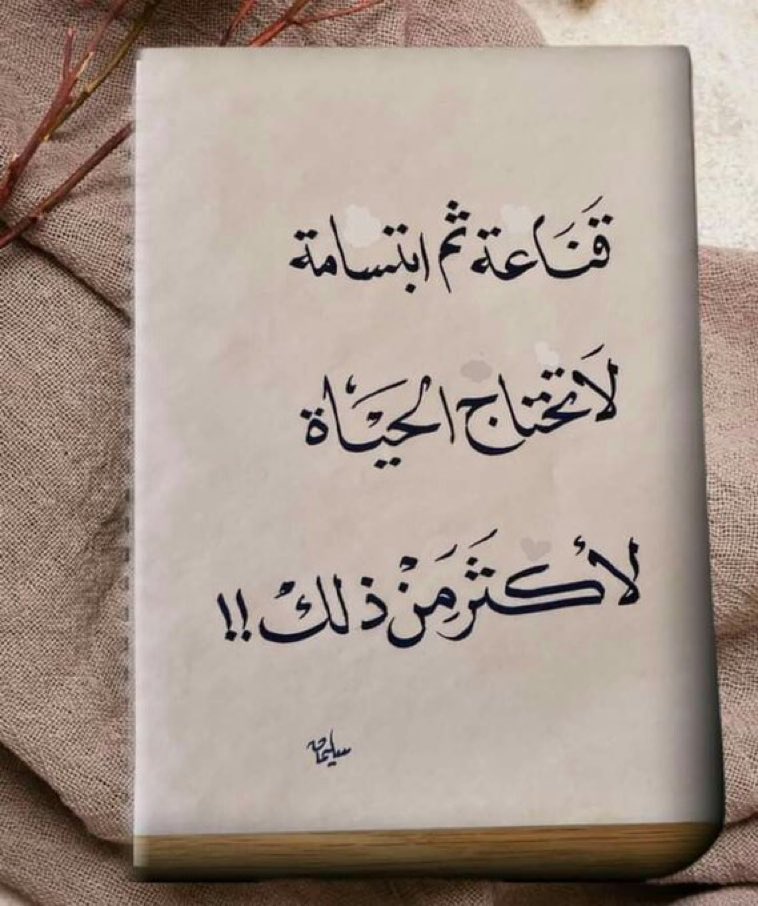 قَنَاعة ثم ابتسامة
لاَ تحتاج الحيَاة
لأكثَر مِنْ ذلكْ !!
سليمان